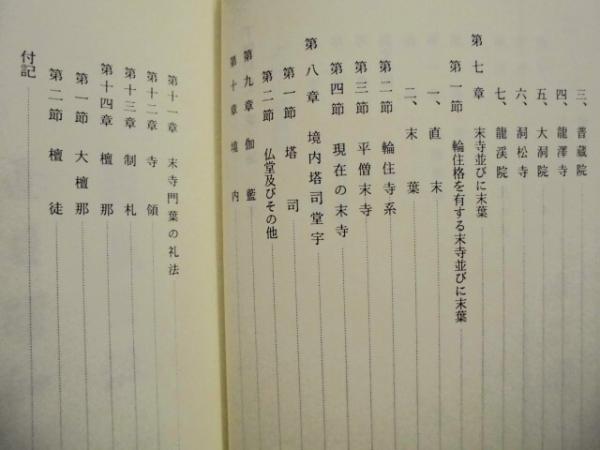 三、普蔵院
四、龍澤寺
五、大洞院
六、洞松寺
七、龍渓院
第七章 末寺並びに末葉
第一節 輪住格を有する末寺並びに末葉
一、直末
二、末葉
第二節 輪住寺系
第三節 平僧末寺
第四節 現在の末寺
第八章 境内塔司堂宇
第一節 塔司
第二節 仏堂及びその他
第九章 伽藍
第十章 境内
第十一章 末寺門葉の礼法
第十二章 寺領
第十三章 制札
第十四章 檀那
第一節 大檀那
第二節 檀徒
付記